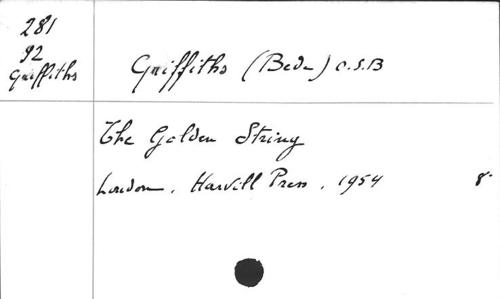 281
92
Griffiths
Griffiths (Bede) O.S.B
The Golden String
London, Harvill Press, 1954 8°